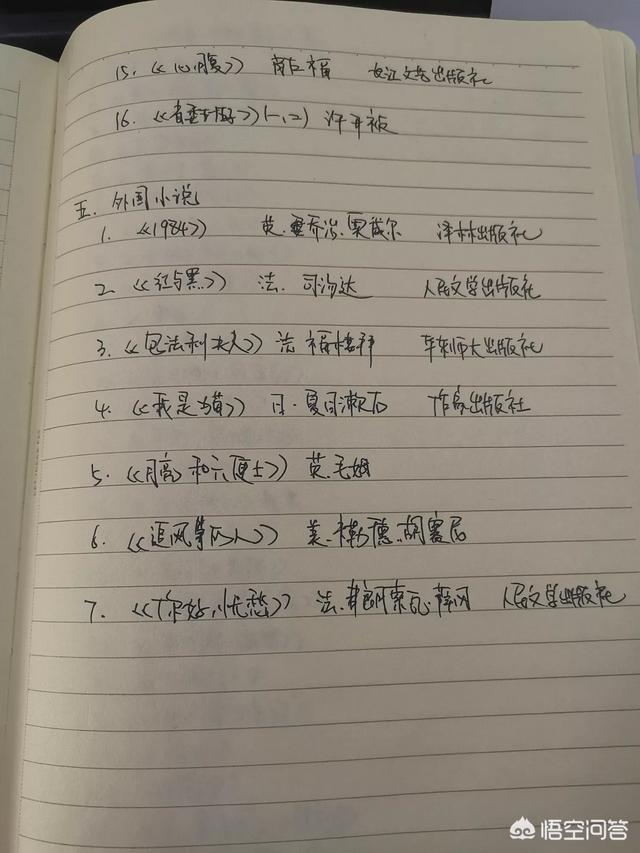 15. 《心腹》 商仁福 长江文艺出版社
16. 《省委大院》(一、二) 许开祯
五. 外国小说
1. 《1984》 英.乔治.奥威尔 译林出版社
2. 《红与黑》 法. 司汤达 人民文学出版社
3. 《包法利夫人》 法 福楼拜 师大出版社
4. 《我是猫》 日.夏目漱石 作家出版社
5. 《月亮和六便士》 英.毛姆
6. 《追风筝的人》 美.卡勒德.胡赛尼
7. 《你好,忧愁》 法.弗朗索瓦.萨冈 人民文学出版社
悟空问答